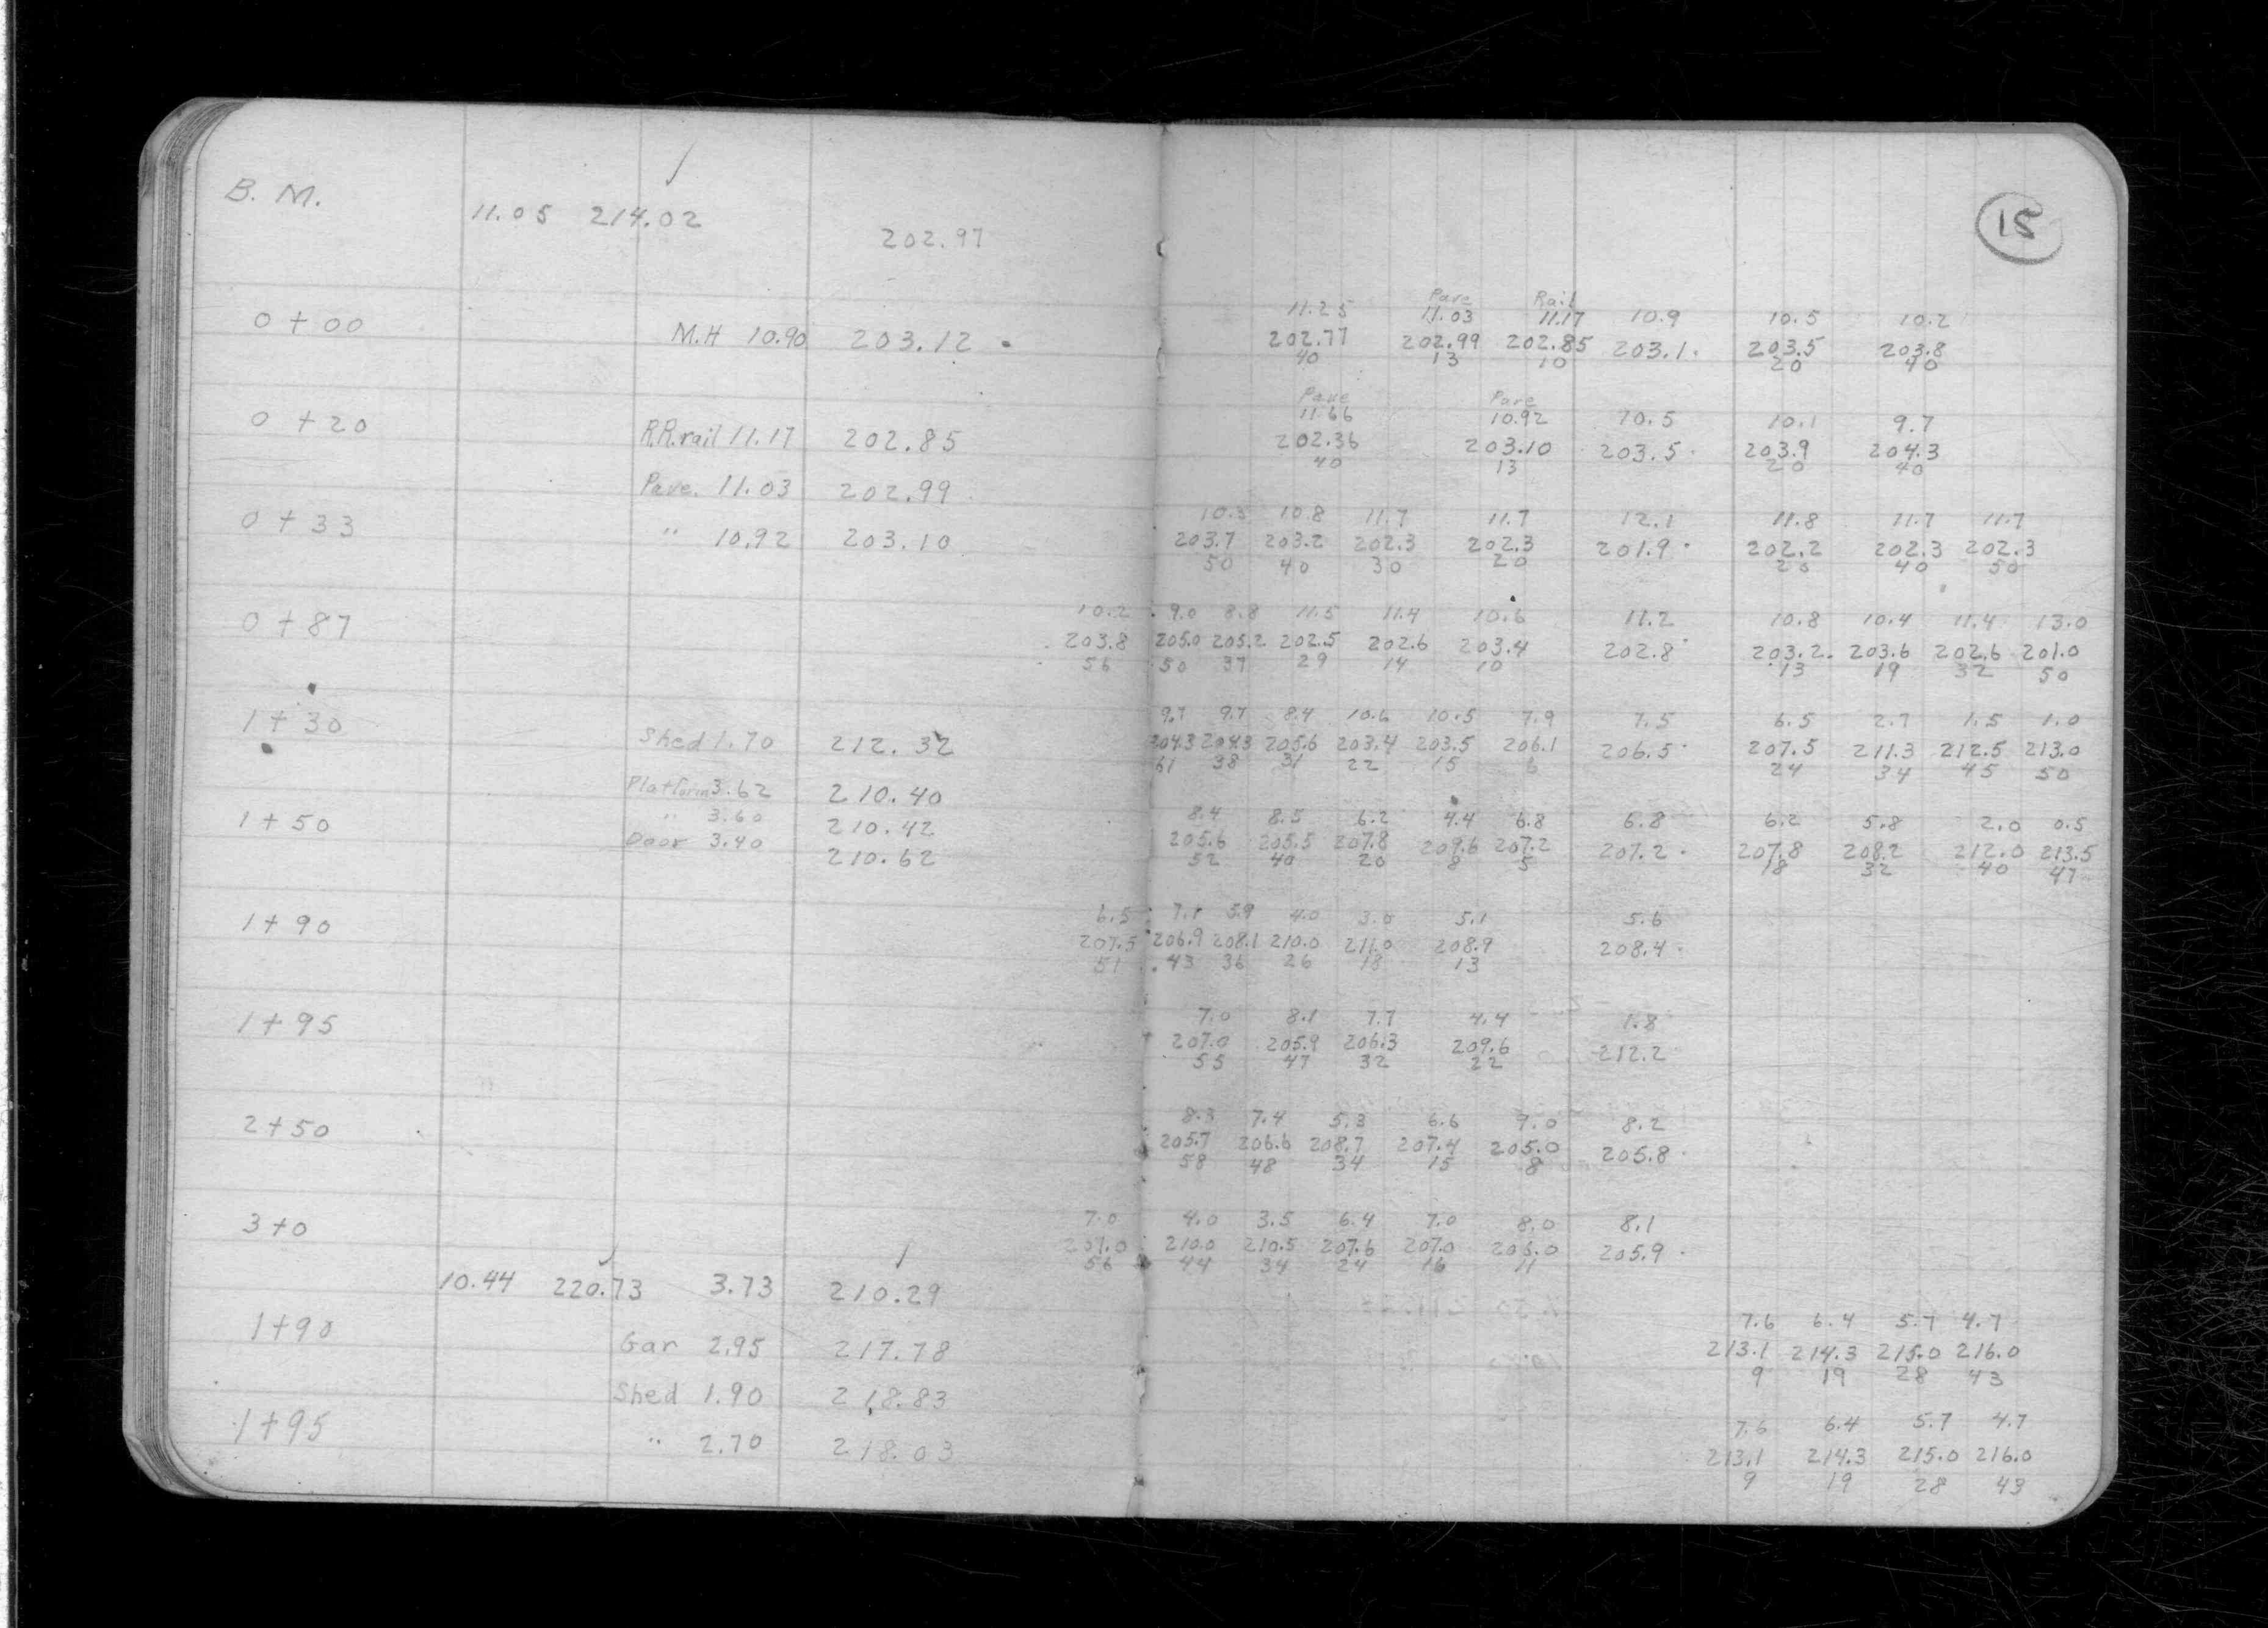 15
B. M. 11.05 214.02 202.97
Pave Rail
11.25 11.03 11.17 10.9 10.5 10.2
0+00 M.H 10.90 203.12 202.77 202.99 202.85 203.1 203.5 203.8
40 13 10 20 40
Pave Pave
11.66 10.92 10.5 10.1 9.7
0+20 R.R.rail 11.17 202.85 202.36 203.10 203.5 203.9 204.3
40 13 20 40
Pave. 11.03 202.99
10.3 10.8 11.7 11.7 12.1 11.8 11.7 11.7
0+33 " 10.92 203.10 203.7 203.2 202.3 202.3 201.9 202.2 202.3 202.3
50 40 30 20 20 40 50
10.2 9.0 8.8 11.5 11.4 10.6 11.2 10.8 10.4 11.4 13.0
0+87 203.8 205.0 205.2 202.5 202.6 203.4 202.8 203.2 203.6 202.6 201.0
56 50 37 29 14 10 13 19 32 50
9.7 9.7 8.4 10.6 10.5 7.9 7.5 6.5 2.7 1.5 1.0
1+30 Shed 1.70 212.32 204.3 204.3 205.6 203.4 203.5 206.1 206.5 207.5 211.3 212.5 213.0
61 38 31 22 15 6 24 34 45 50
Platform 3.62 210.40
8.4 8.5 6.2 4.4 6.8 6.8 6.2 5.8 2.0 0.5
1+50 " 3.60 210.42 205.6 205.5 207.8 209.6 207.2 207.2 207.8 208.2 212.0 213.5
52 40 20 8 5 18 32 40 47
Door 3.40 210.62
6.5 7.1 5.9 4.0 3.0 5.1 5.6
1+90 207.5 206.9 208.1 210.0 211.0 208.9 208.4
51 43 36 26 18 13
7.0 8.1 7.7 4.4 1.8
1+95 207.0 205.9 206.3 209.6 212.2
55 47 32 22
8.3 7.4 5.3 6.6 9.0 8.2
2+50 205.7 206.6 208.7 207.4 205.0 205.8
58 48 34 15 8
7.0 4.0 3.5 6.4 7.0 8.0 8.1
3+0 207.0 210.0 210.5 207.6 207.0 206.0 205.9
56 44 34 24 16 11
10.44 220.73 3.73 210.29
7.6 6.4 5.7 4.7
1+90 Gar 2.95 217.78 213.1 214.3 215.0 216.0
9 19 28 43
Shed 1.90 218.83
7.6 6.4 5.7 4.7
1+95 " 2.70 218.03 213.1 214.3 215.0 216.0
9 19 28 43